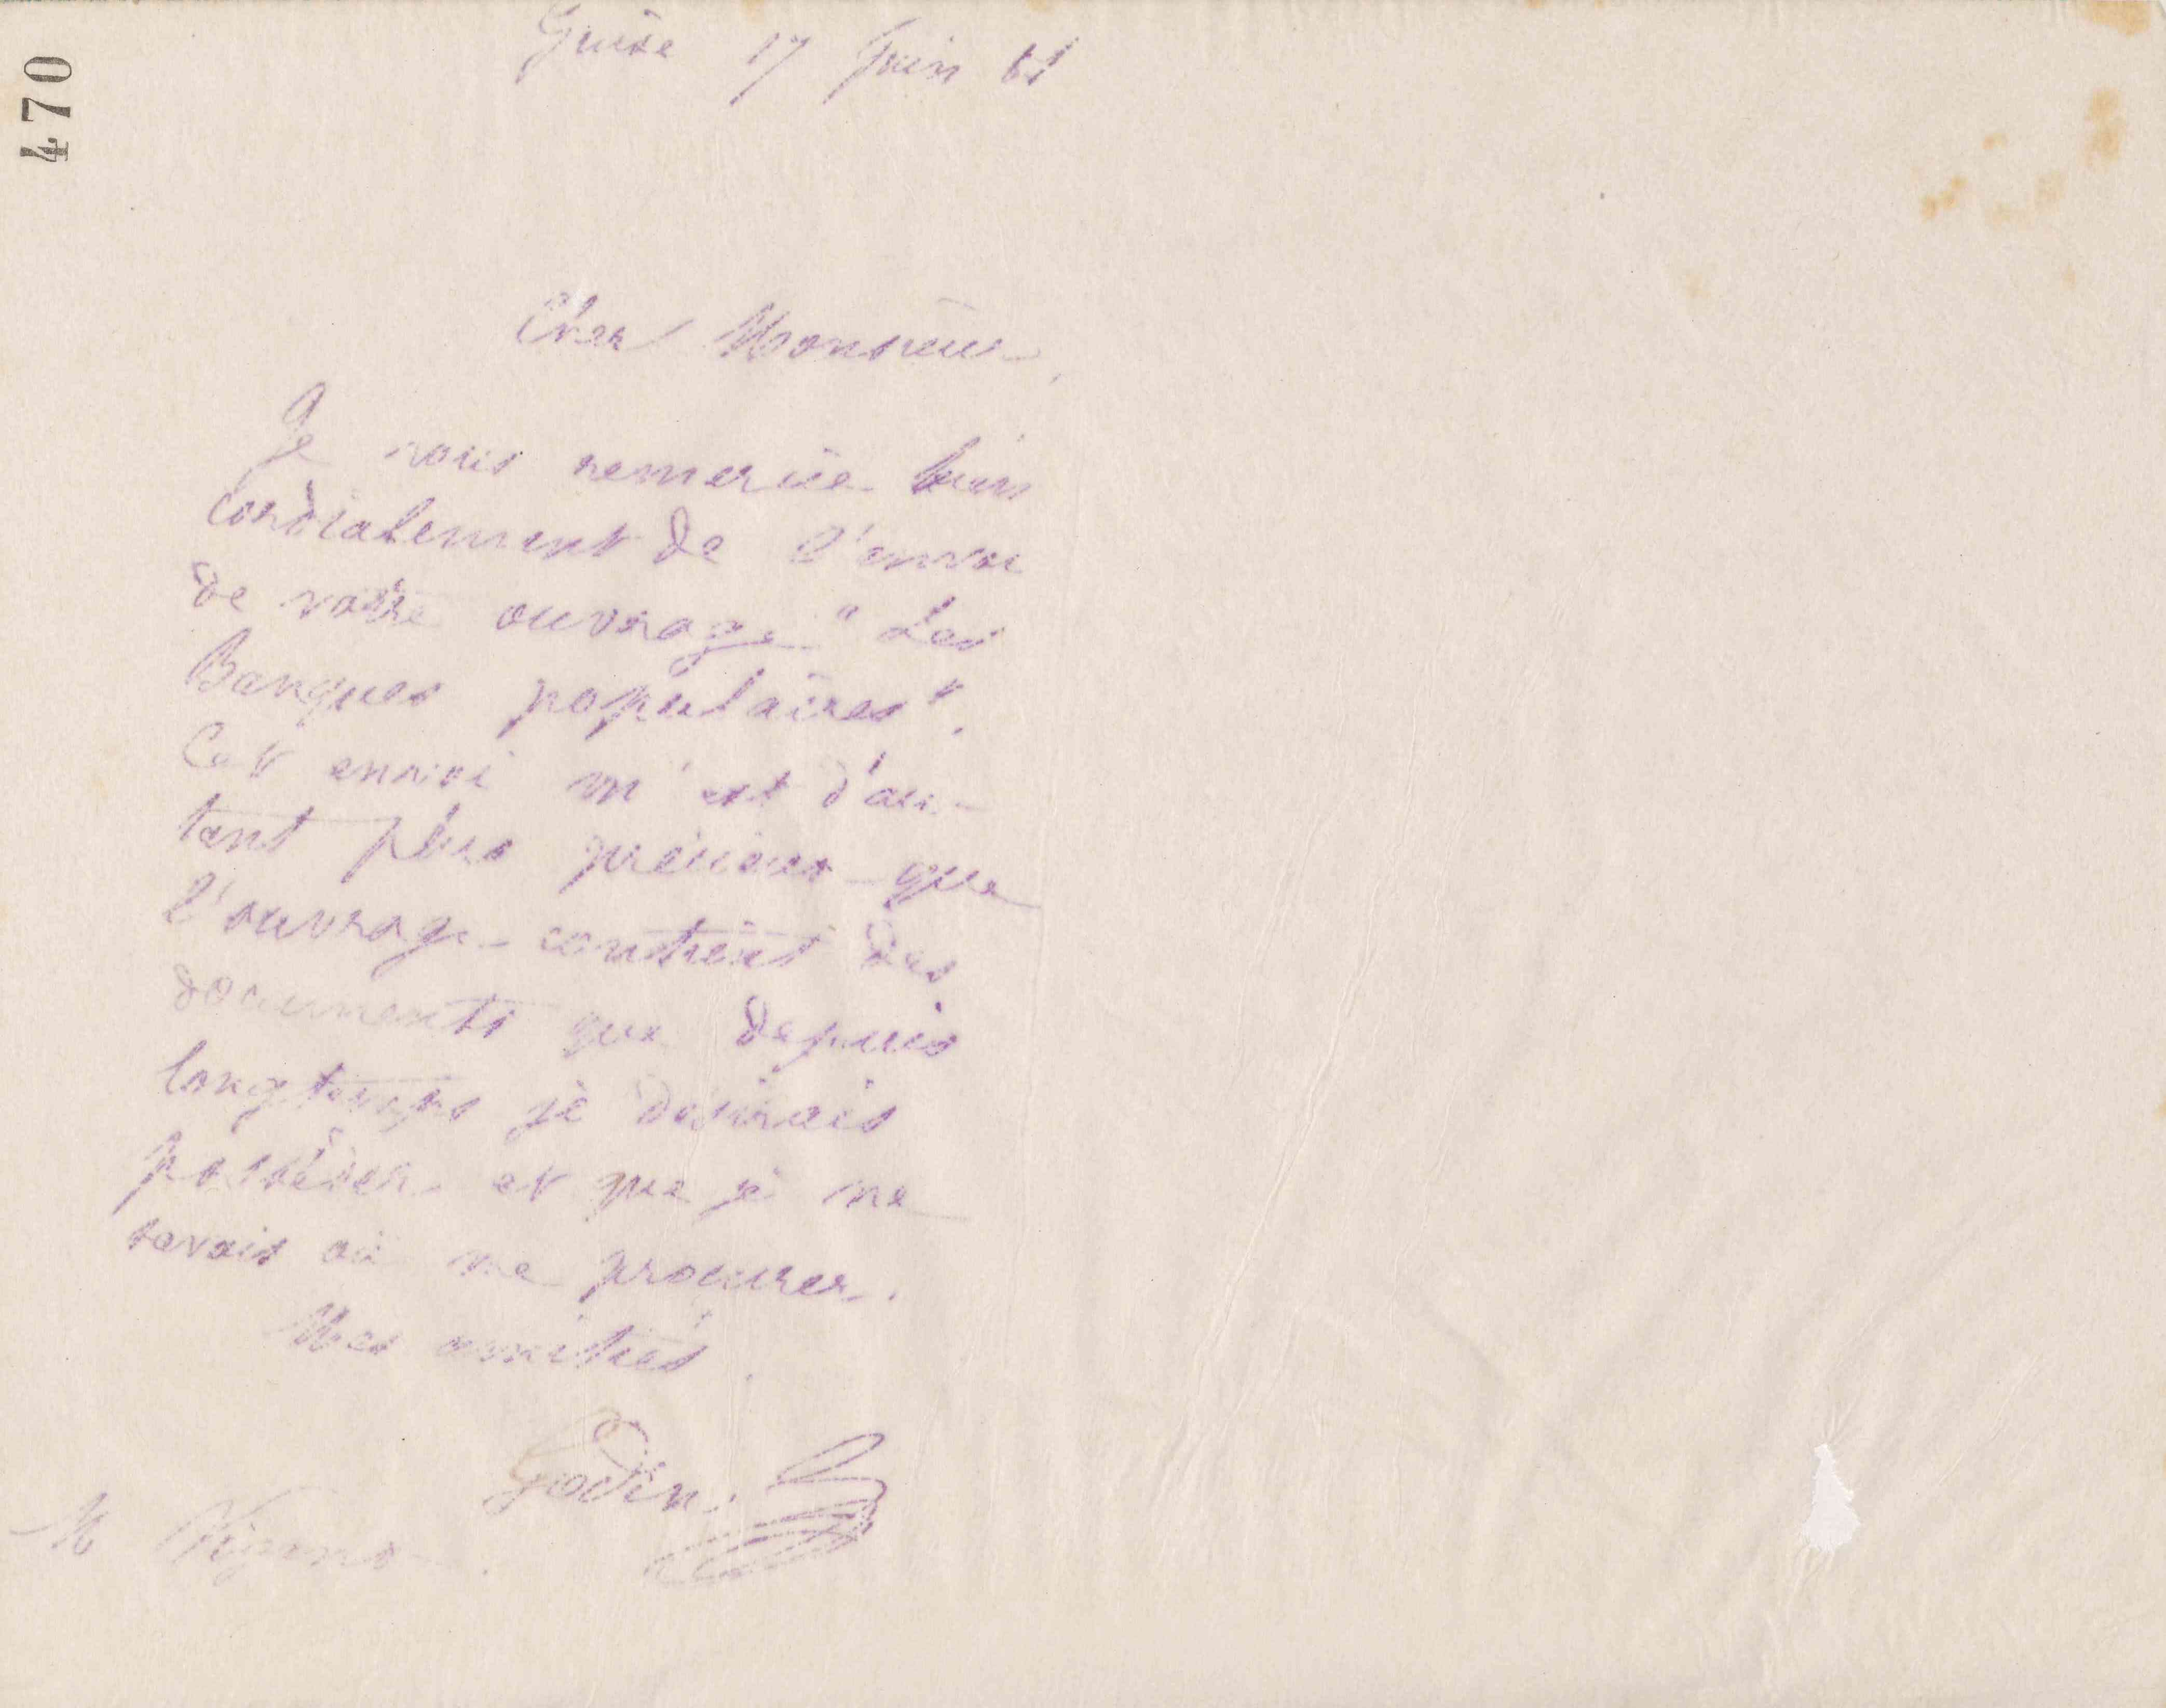 470
Guise 17 Juin 81
Cher Monsieur,
Je vous remercie bien
cordialement de l'envoi
de votre ouvrage " Les
Banques populaires".
Cet envoi m'est d'au-
tant plus précieux que
l'ouvrage contient des
documents que depuis
longtemps je désirais
posséder et que je ne
savais où me procurer.
Mes amitiés.
Godin.
M Vigano.